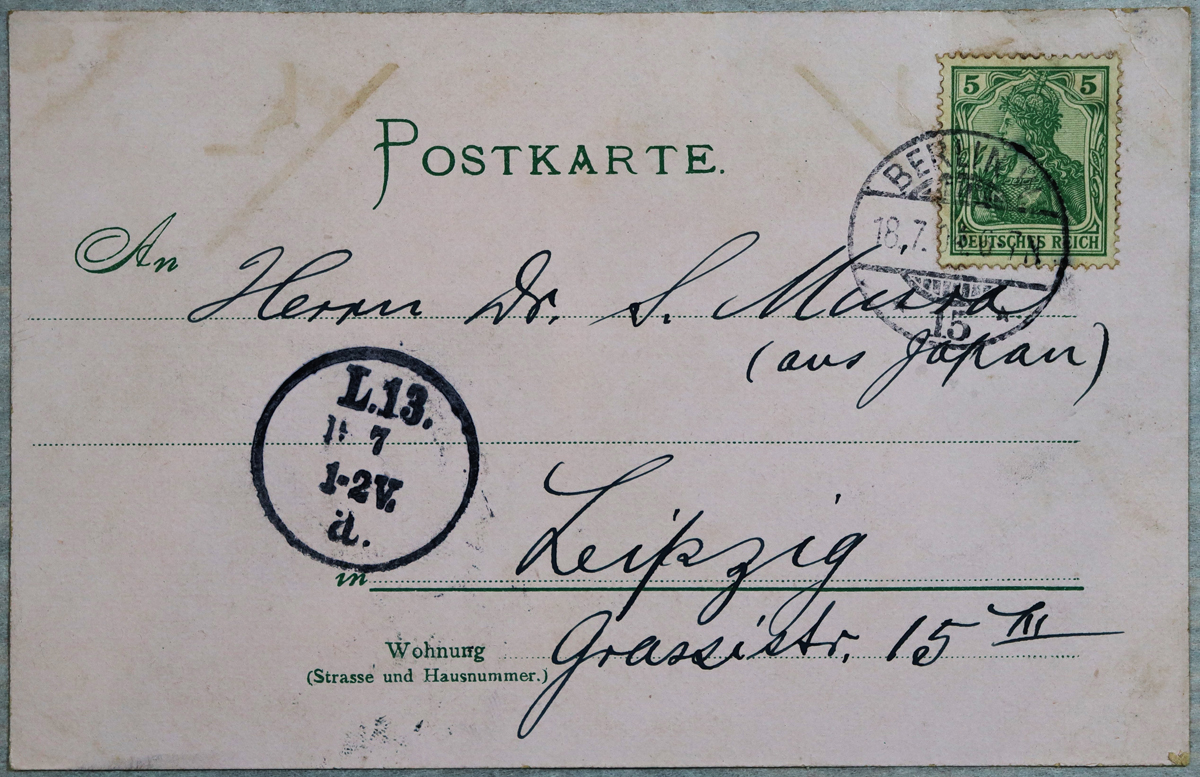 POSTKARTE.
5 5
DEUTSCHES REICH
BERLIN
18.7.
15 *
An
Herrn Dr. S. Miura
(aus Japan)
L.13.
7
1-2V.
a.
in Leipzig
Wohnung
(Strasse und Hausnummer.)
Grassistr. 15 III